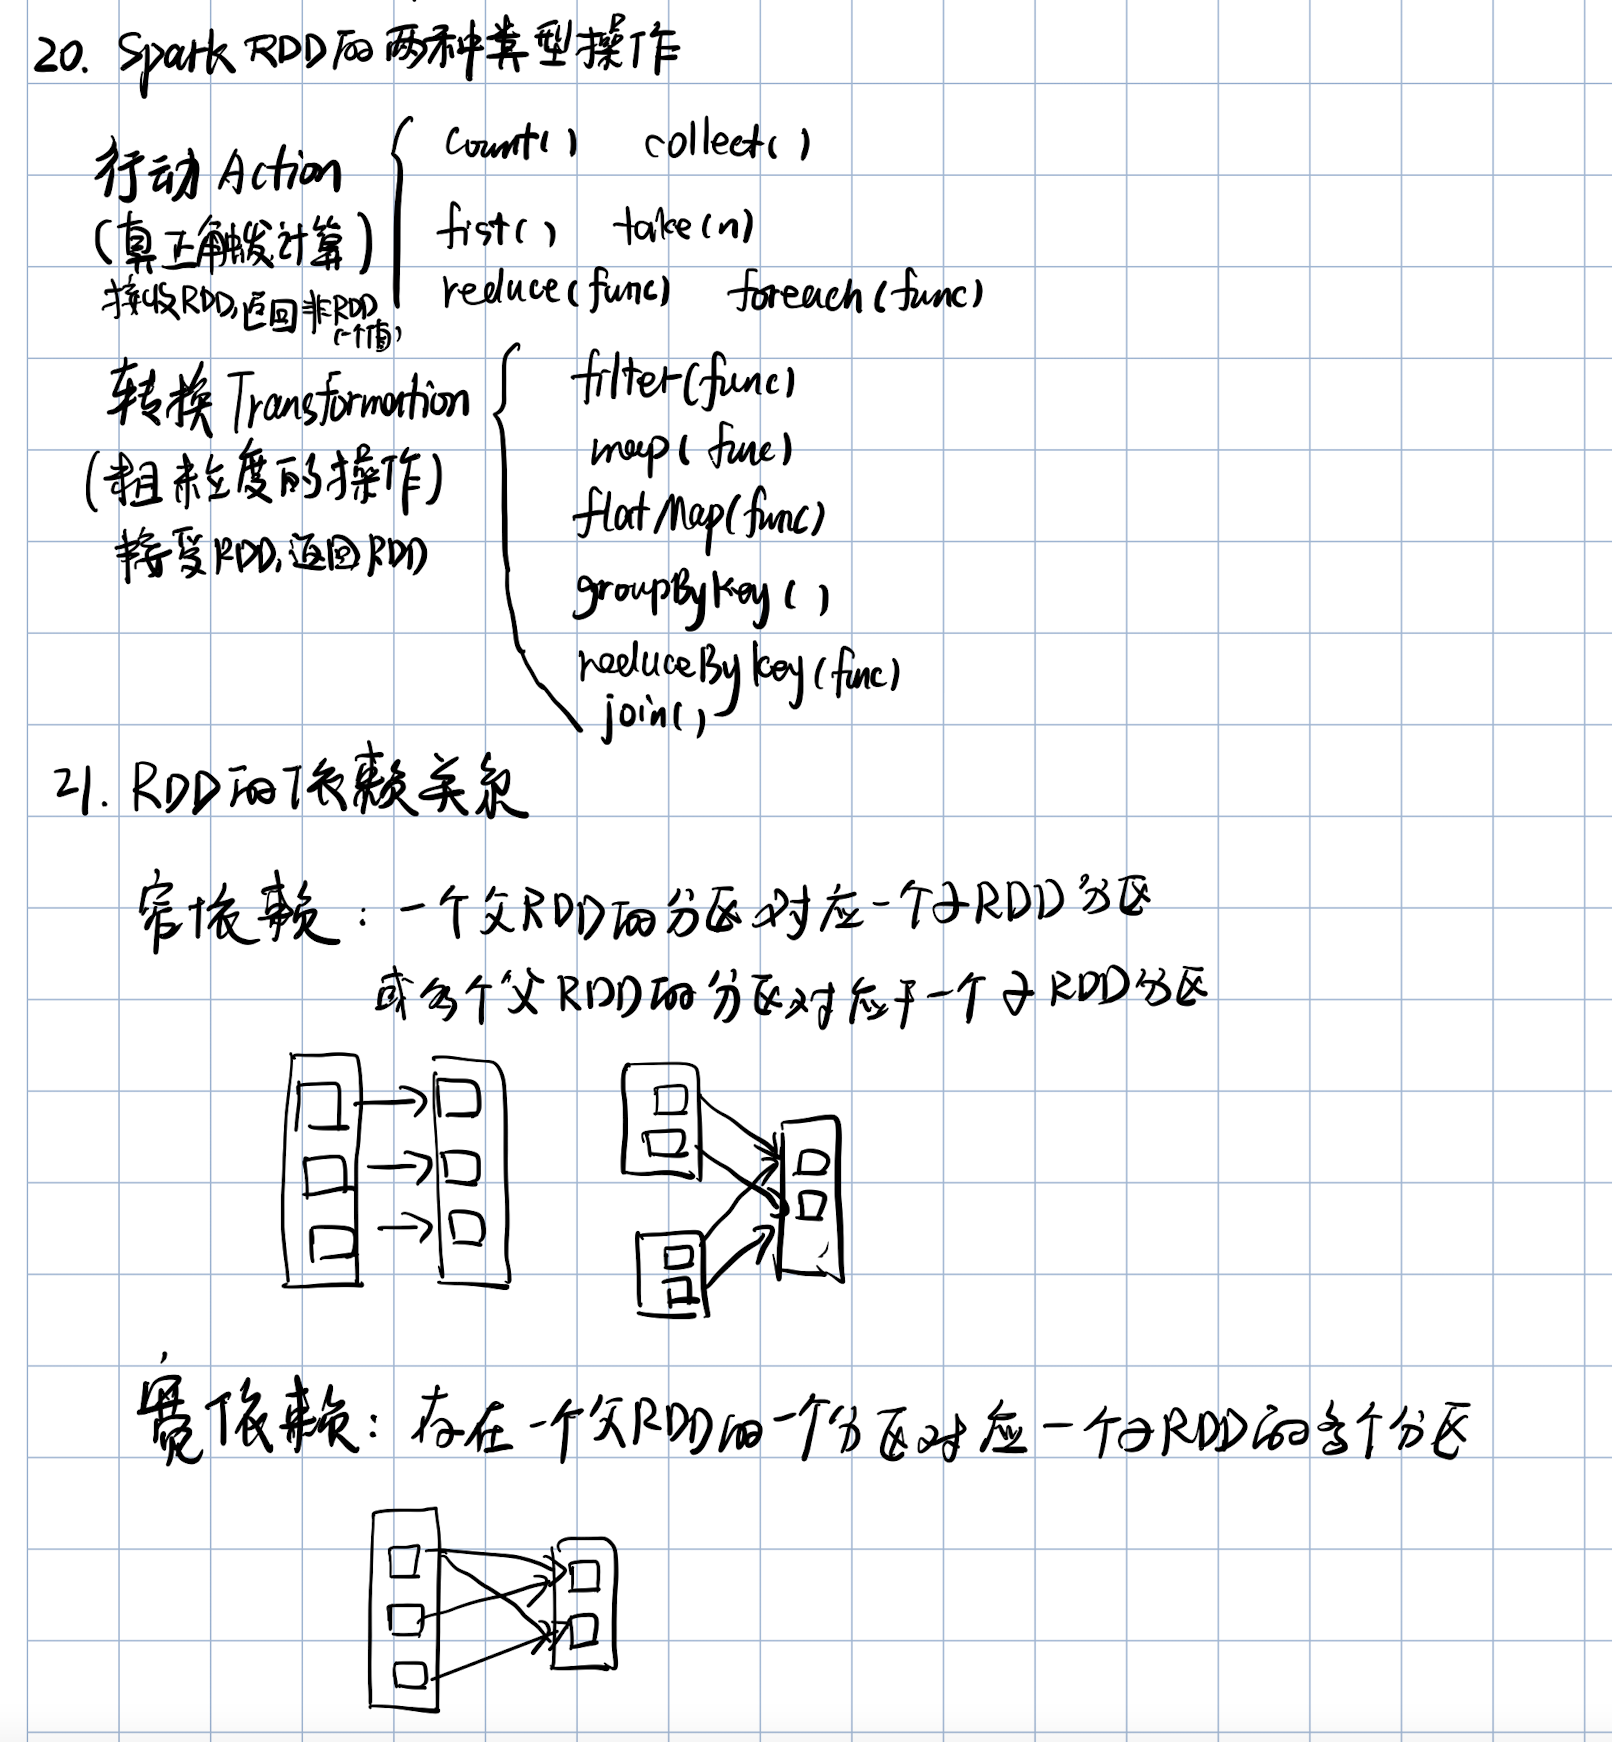 20. Spark RDD的两种类型操作
行动 Action
(真正触发计算)
接收RDD,返回非RDD
(一个值)
count() collect()
fist() take(n)
reduce(func) foreach(func)
转换 Transformation
(粗粒度的操作)
接受RDD,返回RDD
filter(func)
map(func)
flatMap(func)
groupByKey()
reduceByKey(func)
join()
21. RDD的依赖关系
窄依赖:一个父RDD的分区对应一个子RDD分区
或多个父RDD的分区对应于一个子RDD分区
宽依赖:存在一个父RDD的一个分区对应一个子RDD的多个分区